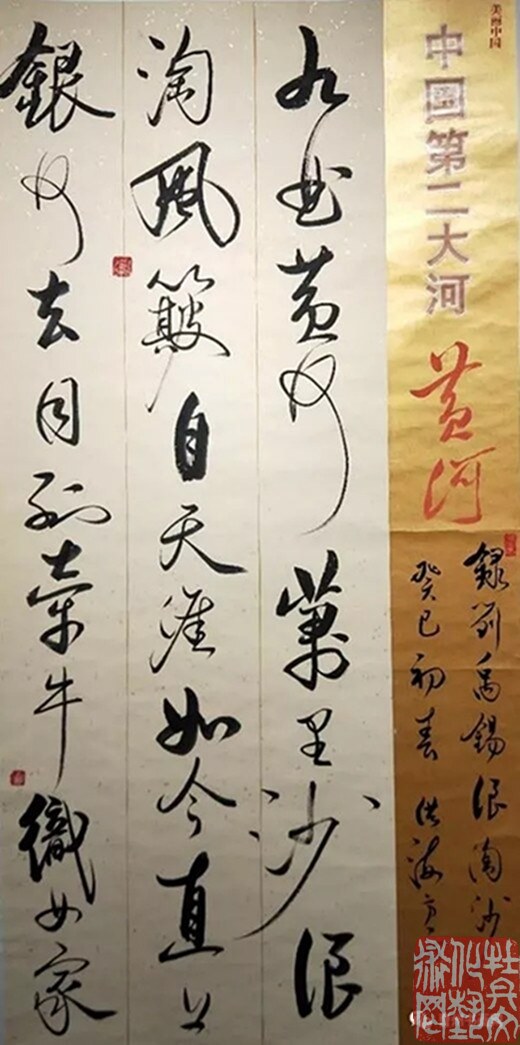 美丽中国
中国第二大河
黄河
録刘禹锡浪淘沙
癸巳初春洪海
九曲黄河萬里沙浪
淘風簸自天涯如今直上
銀河去同到牵牛織女家